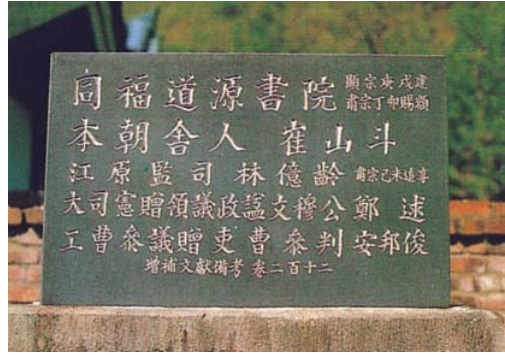 同福道源書院 顯宗庚戌建
肅宗丁卯賜額
本朝舍人 崔山斗
江原監司 林億齡 肅宗己未追享
大司憲贈領議政諡文穆公鄭逑
工曹參議贈吏曹參判安邦俊
增補文獻備考 卷二百十二